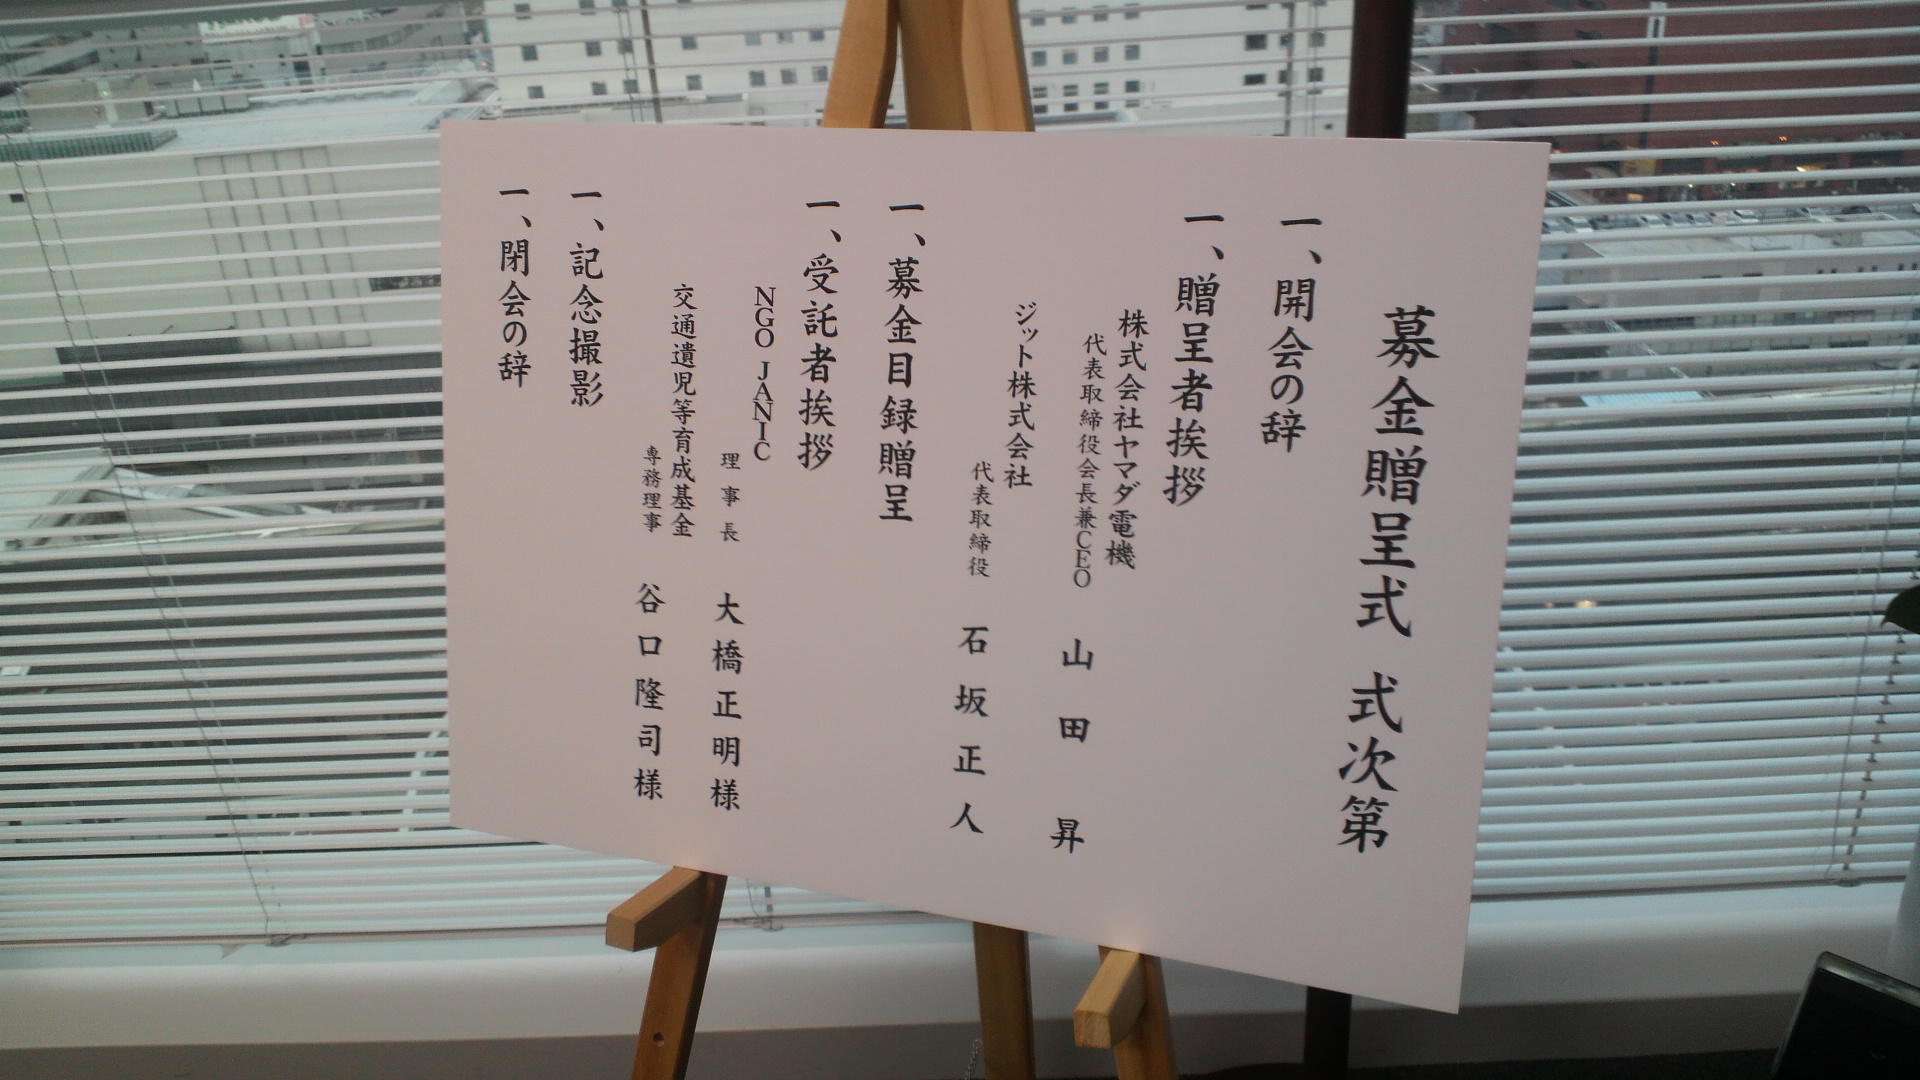 募金贈呈式 式次第
一、開会の辞
一、贈呈者挨拶
株式会社ヤマダ電機
代表取締役会長兼CEO 山田 昇
ジット株式会社
代表取締役 石坂正人
一、募金目録贈呈
一、受託者挨拶
NGO JANIC
理事長 大橋正明様
交通遺児等育成基金
専務理事 谷口隆司様
一、記念撮影
一、閉会の辞